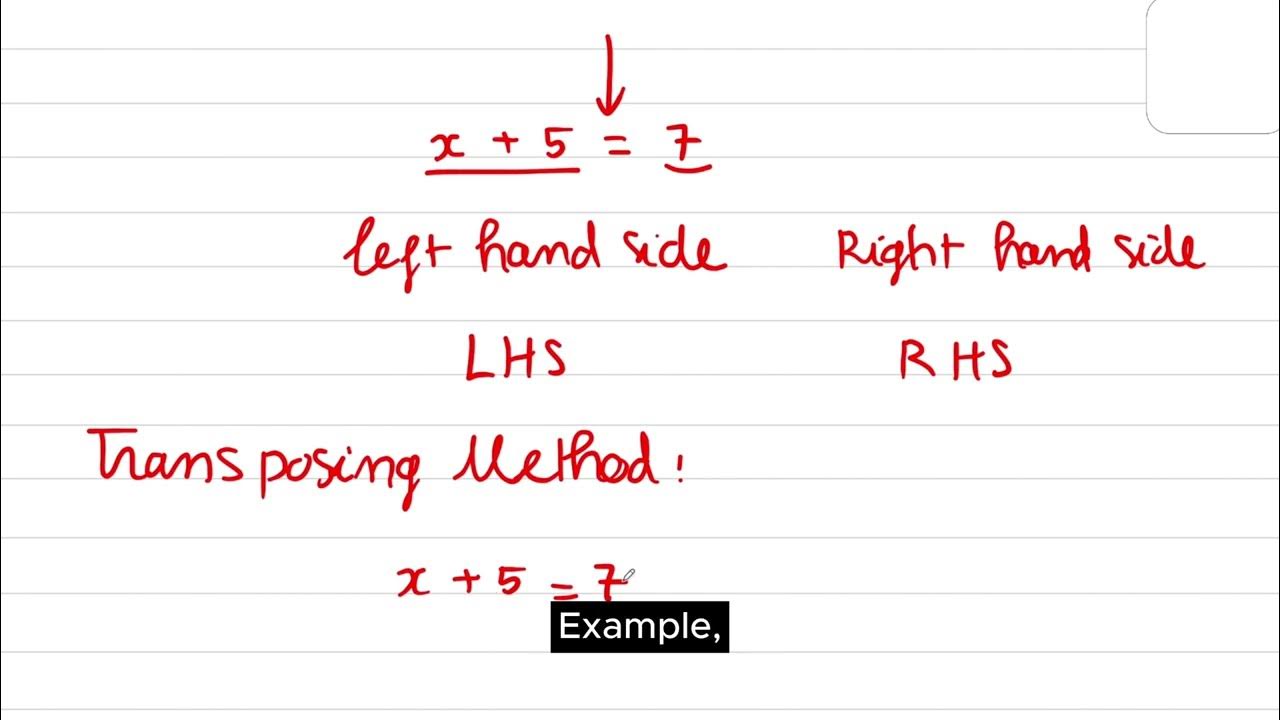 x + 5 = 7
left hand side Right hand side
LHS RHS
Transposing Method:
x + 5 = 7
Example,